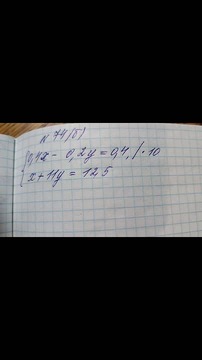 N 74(б)
{0,4x - 0,2y = 0,4, | · 10
{x + 11y = 125